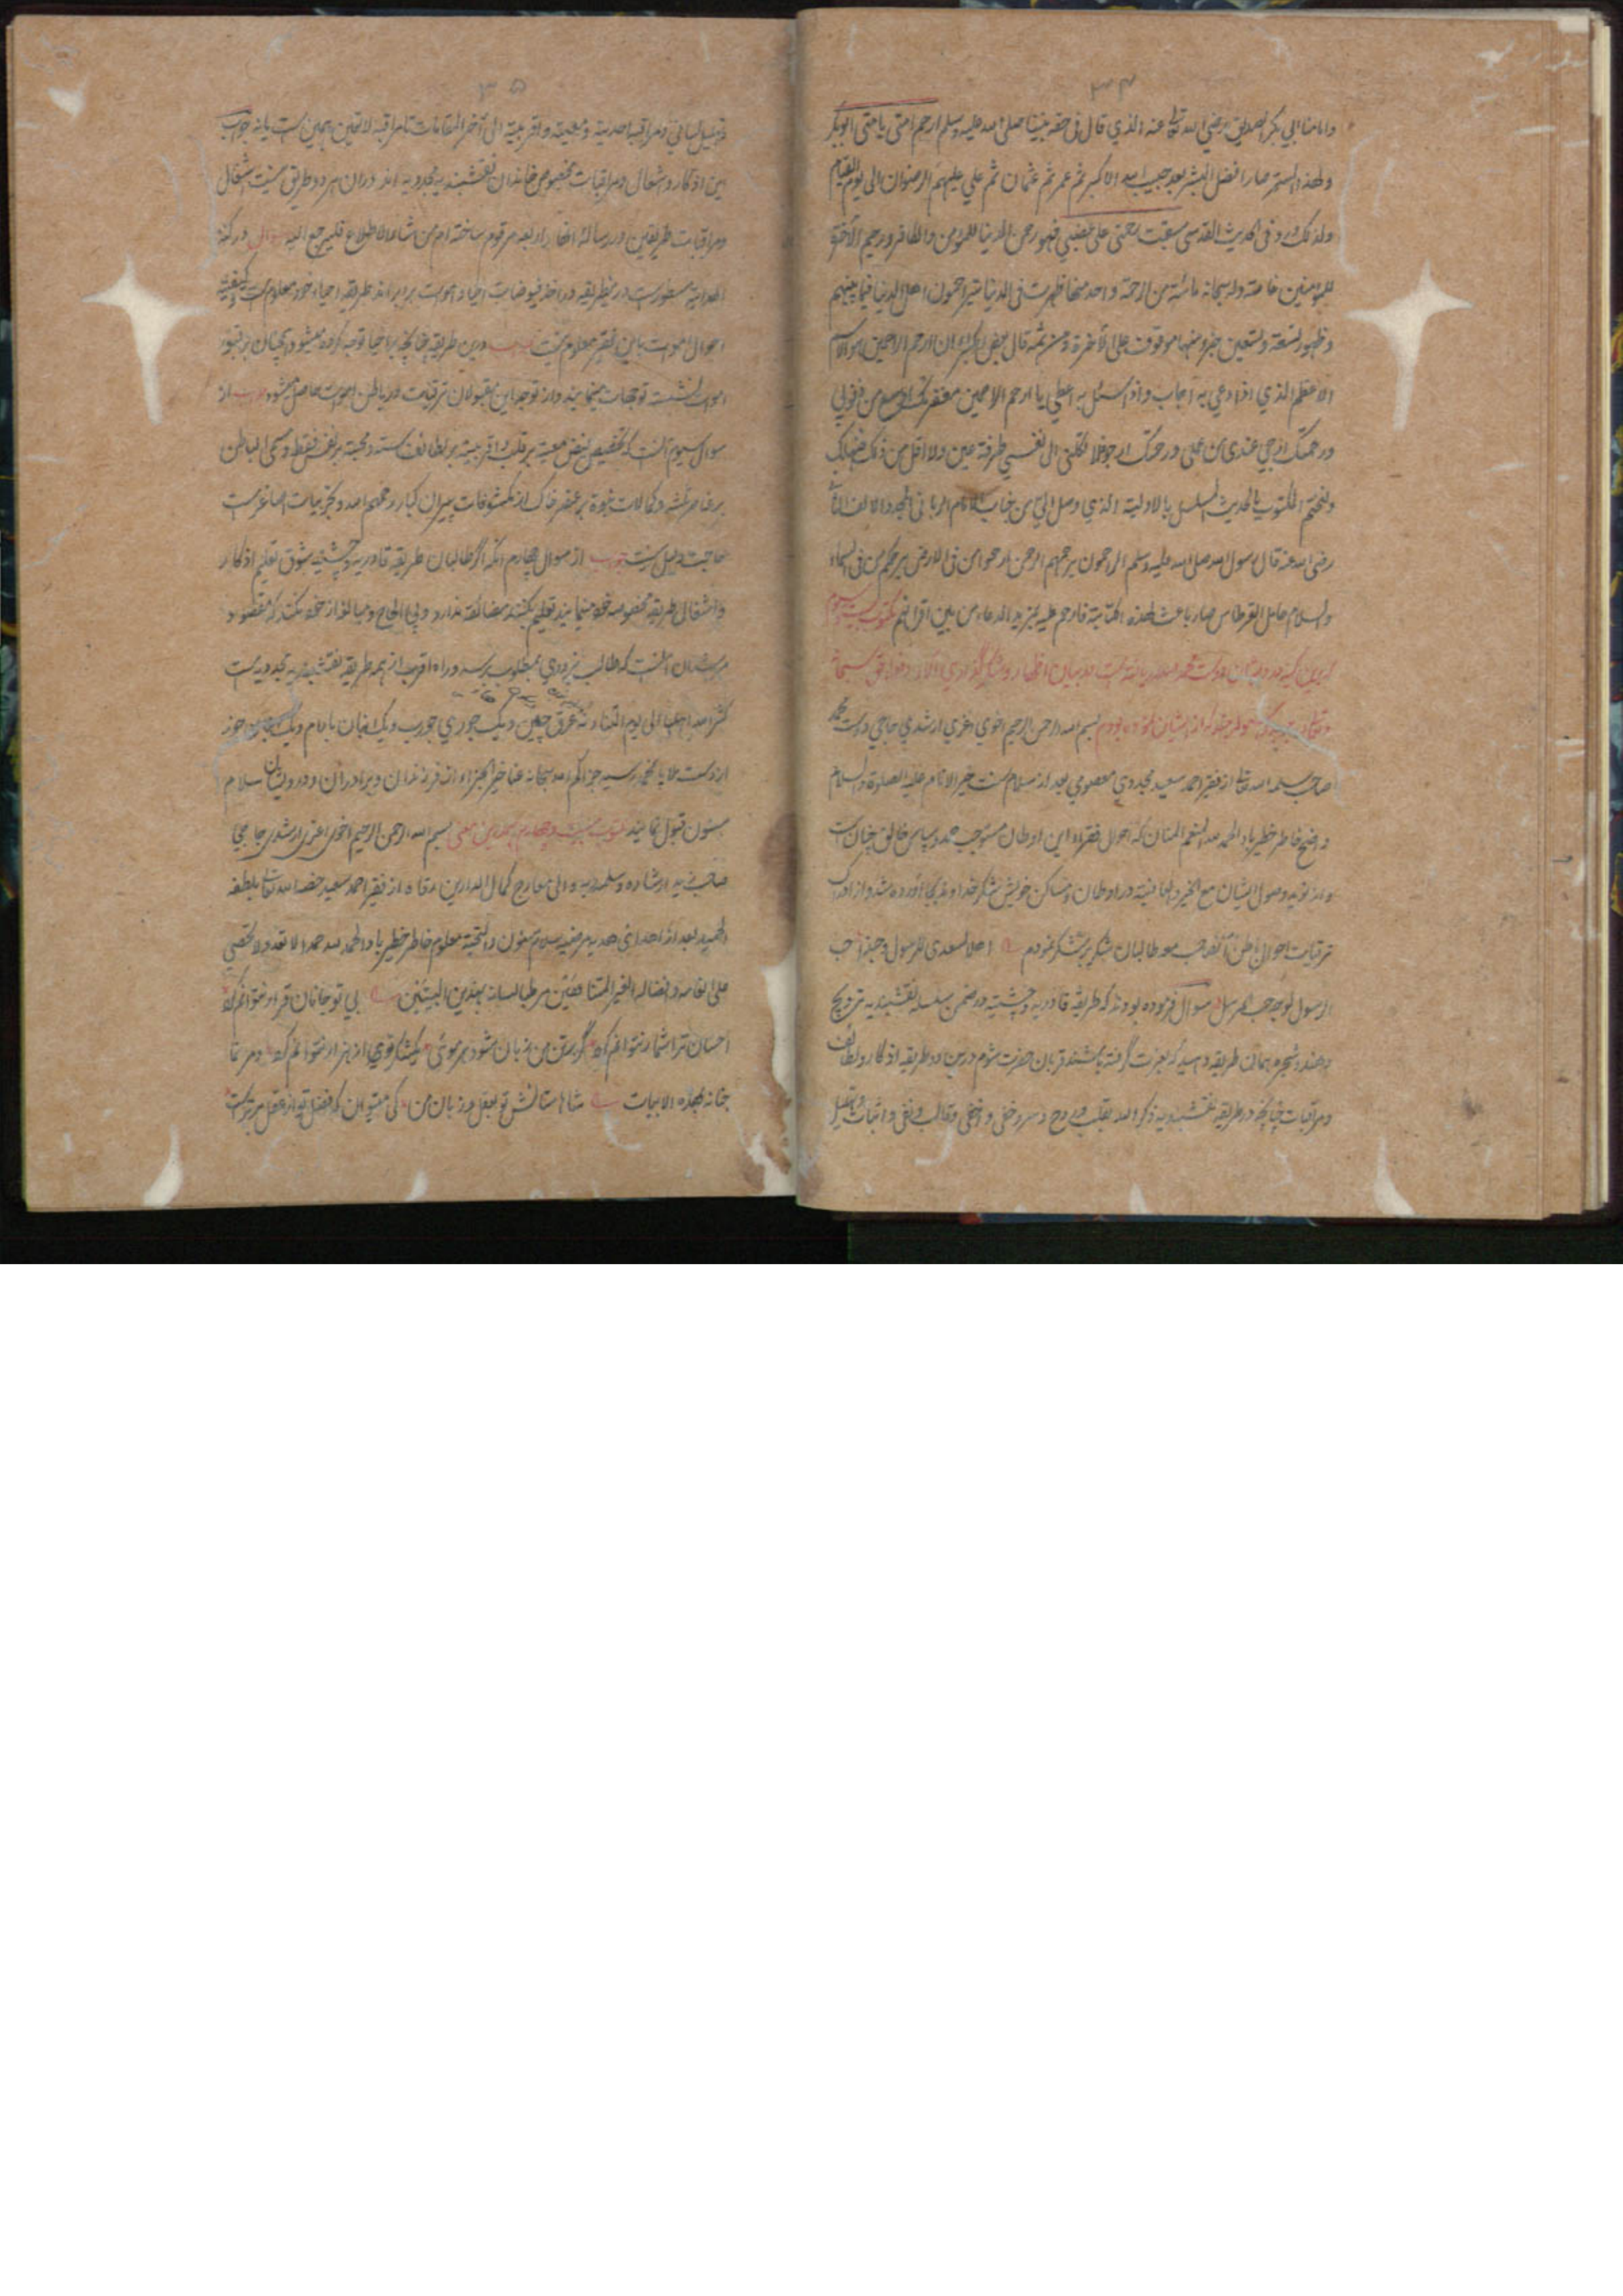 ۳۴
وامامنا ابي بكر الصديق رضي الله تعالى عنه الذي قال في حقه نبينا صلى الله عليه وسلم ارحم امتي بامتي ابو بكر
ولهذا السر صار افضل البشر بعد حبيب الله الاكبر ثم عمر ثم عثمان ثم علي عليهم الرضوان الى يوم القيام
ولذلك ورد في الحديث القدسي سبقت رحمتي على غضبي فهو رحمن الدنيا للمؤمن والكافر ورحيم الآخرة
للمؤمنين خاصة وله سبحانه مائة من الرحمة واحد منها ظهرت في الدنيا يتراحمون اهل الدنيا فيما بينهم
وظهور تسعة وتسعين جزو منها موقوف على الآخرة ومن ثمه قال بعض الكبراء ان ارحم الراحمين هو الاسم
الاعظم الذي اذا دعي به اجاب واذا سئل به اعطى يا ارحم الراحمين مغفرتك اوسع من ذنوبي
ورحمتك ارجى عندي من عملي ورحمتك ارجو فلا تكلني الى نفسي طرفة عين ولا اقل من ذلك
ولنختم المكتوب بالحديث المسلسل بالاولية الذي وصل الي من جناب الامام الرباني المجدد الالف الثاني
رضي الله عنه قال رسول الله صلى الله عليه وسلم الراحمون يرحمهم الرحمن ارحموا من في الارض يرحمكم من في السماء
والسلام حامل القرطاس صار باعث لهذه الكتابة فارحم عليه بمزيد الدعاء من بين اقرانهم مكتوب بيست وسوم
دوست محمد در بيان اظهار وشكر گذاري
بسم الله الرحمن الرحيم اخوي اعزي ارشدي حاجي دوست محمد
صاحب سلمه الله تعالى از فقير احمد سعيد مجددي معصومي بعد از سلام سنت خير الانام عليه الصلوة والسلام
واضح خاطر خطير باد الحمد لله المنعم المنان كه احوال فقراء اين اوطان مستوجب حمد وسپاس خالق جهان است
واز نويد وصول ايشان مع الخير والعافية در اوطان ومساكن خويش شكر خداوندي بجا آورده شد واز ادراك
ترقيات احوال باطن طالبان شكر بر شكر نمودم اهلا لسعدى للرسول وحبذا حب
الرسول لوجه حب المرسل سوال فرموده بودند كه طريقه قادريه وچشتيه در ضمن سلسله نقشبنديه ترويج
دهند وشجره همان طريقه كه بعزت گرفته باشند قربان حضرت شوم درين دو طريقه اذكار ولطائف
ومراقبات چنانچه در طريقه نقشبنديه ذكر الله بقلب وروح وسر وخفي واخفى وقالب ونفي واثبات وتهليل
۳۵
وتهليل لساني ومراقبه احديه ومعيته واقربيته الى آخر المقامات تا مراقبه لا تعين همين است يا نه جواب
اين اذكار واشغال ومراقبات مخصوص خاندان نقشبنديه مجدديه اند دران هر دو طريق نيست اشغال
ومراقبات طريقين در رساله انهار اربعه مرقوم ساخته ام من شاء الاطلاع فليرجع اليه سوال در كنز
الهدايه مسطور است درين طريقه در اخذ فيوضات احياء واموات برابر اند طريقه احياء خود معلوم است وكيفيت
احوال اموات باين فقير معلوم نيست جواب درين طريقه چنانچه بر احيا توجه كرده ميشود همچنان بر قبور
اموات نشسته توجهات مينمايند واز توجه اين مقبولان ترقيات در باطن اموات حاصل ميشود جواب از
سوال سيوم آنست كه تخصيص فيض معيت بر قلب واقربيت بر لطائف سته ومحبت بر نفس فقط ومسمى الباطن
بر عناصر ثلثه وكمالات نبوة بر عنصر خاك از مكشوفات پيران كبار رحمهم الله وتجربيات اصاغر است
حاجت دليل نيست جواب از سوال چهارم آنكه اگر طالبان طريقه قادريه وچشتيه شوق تعليم اذكار
واشغال طريقه مخصوصه خود مينمايند تعليم بكنند مضائقه ندارد وبي الحاح ومبالغه از خود نكنند كه مقصود
آنست كه طالب بزودي بمطلوب برسد وراه اقرب از همه طريقه نقشبنديه مجدديه است
كثر الله اهلها الى يوم التناد نه عرق چين ويك جوري جورب ويك انبان بادام ويك
از دست ملا رسيد جزاكم الله سبحانه عنا خير الجزاء از فرزندان وبرادران ودرويشان سلام
مسنون قبول نمايند مكتوب بيست وچهارم بسم الله الرحمن الرحيم اخوي اعزي ارشدي حاجي
صاحب زيد ارشاده وسلمه ربه والى معارج كمال الدارين ارقاه از فقير احمد سعيد خصه الله تعالى بلطفه
الحميد بعد از اهداي هديه مرضيه سلام مسنون والتحية معلوم خاطر خطير باد الحمد لله حمدا لا تعد ولا تحصى
على انعامه وافضاله الغير المتناهيين مرطبا لسانه بهذين البيتين بي تو جانان قرار نتوانم كرد
احسان ترا شمار نتوانم كرد گر بر تن من زبان شود هر موئي يك شكر تو از هزار نتوانم كرد
جنانه بهذه الابيات شاها ستائش تو بعقل وزبان من كي ميتوان كه فضل تو از عقل برتر است